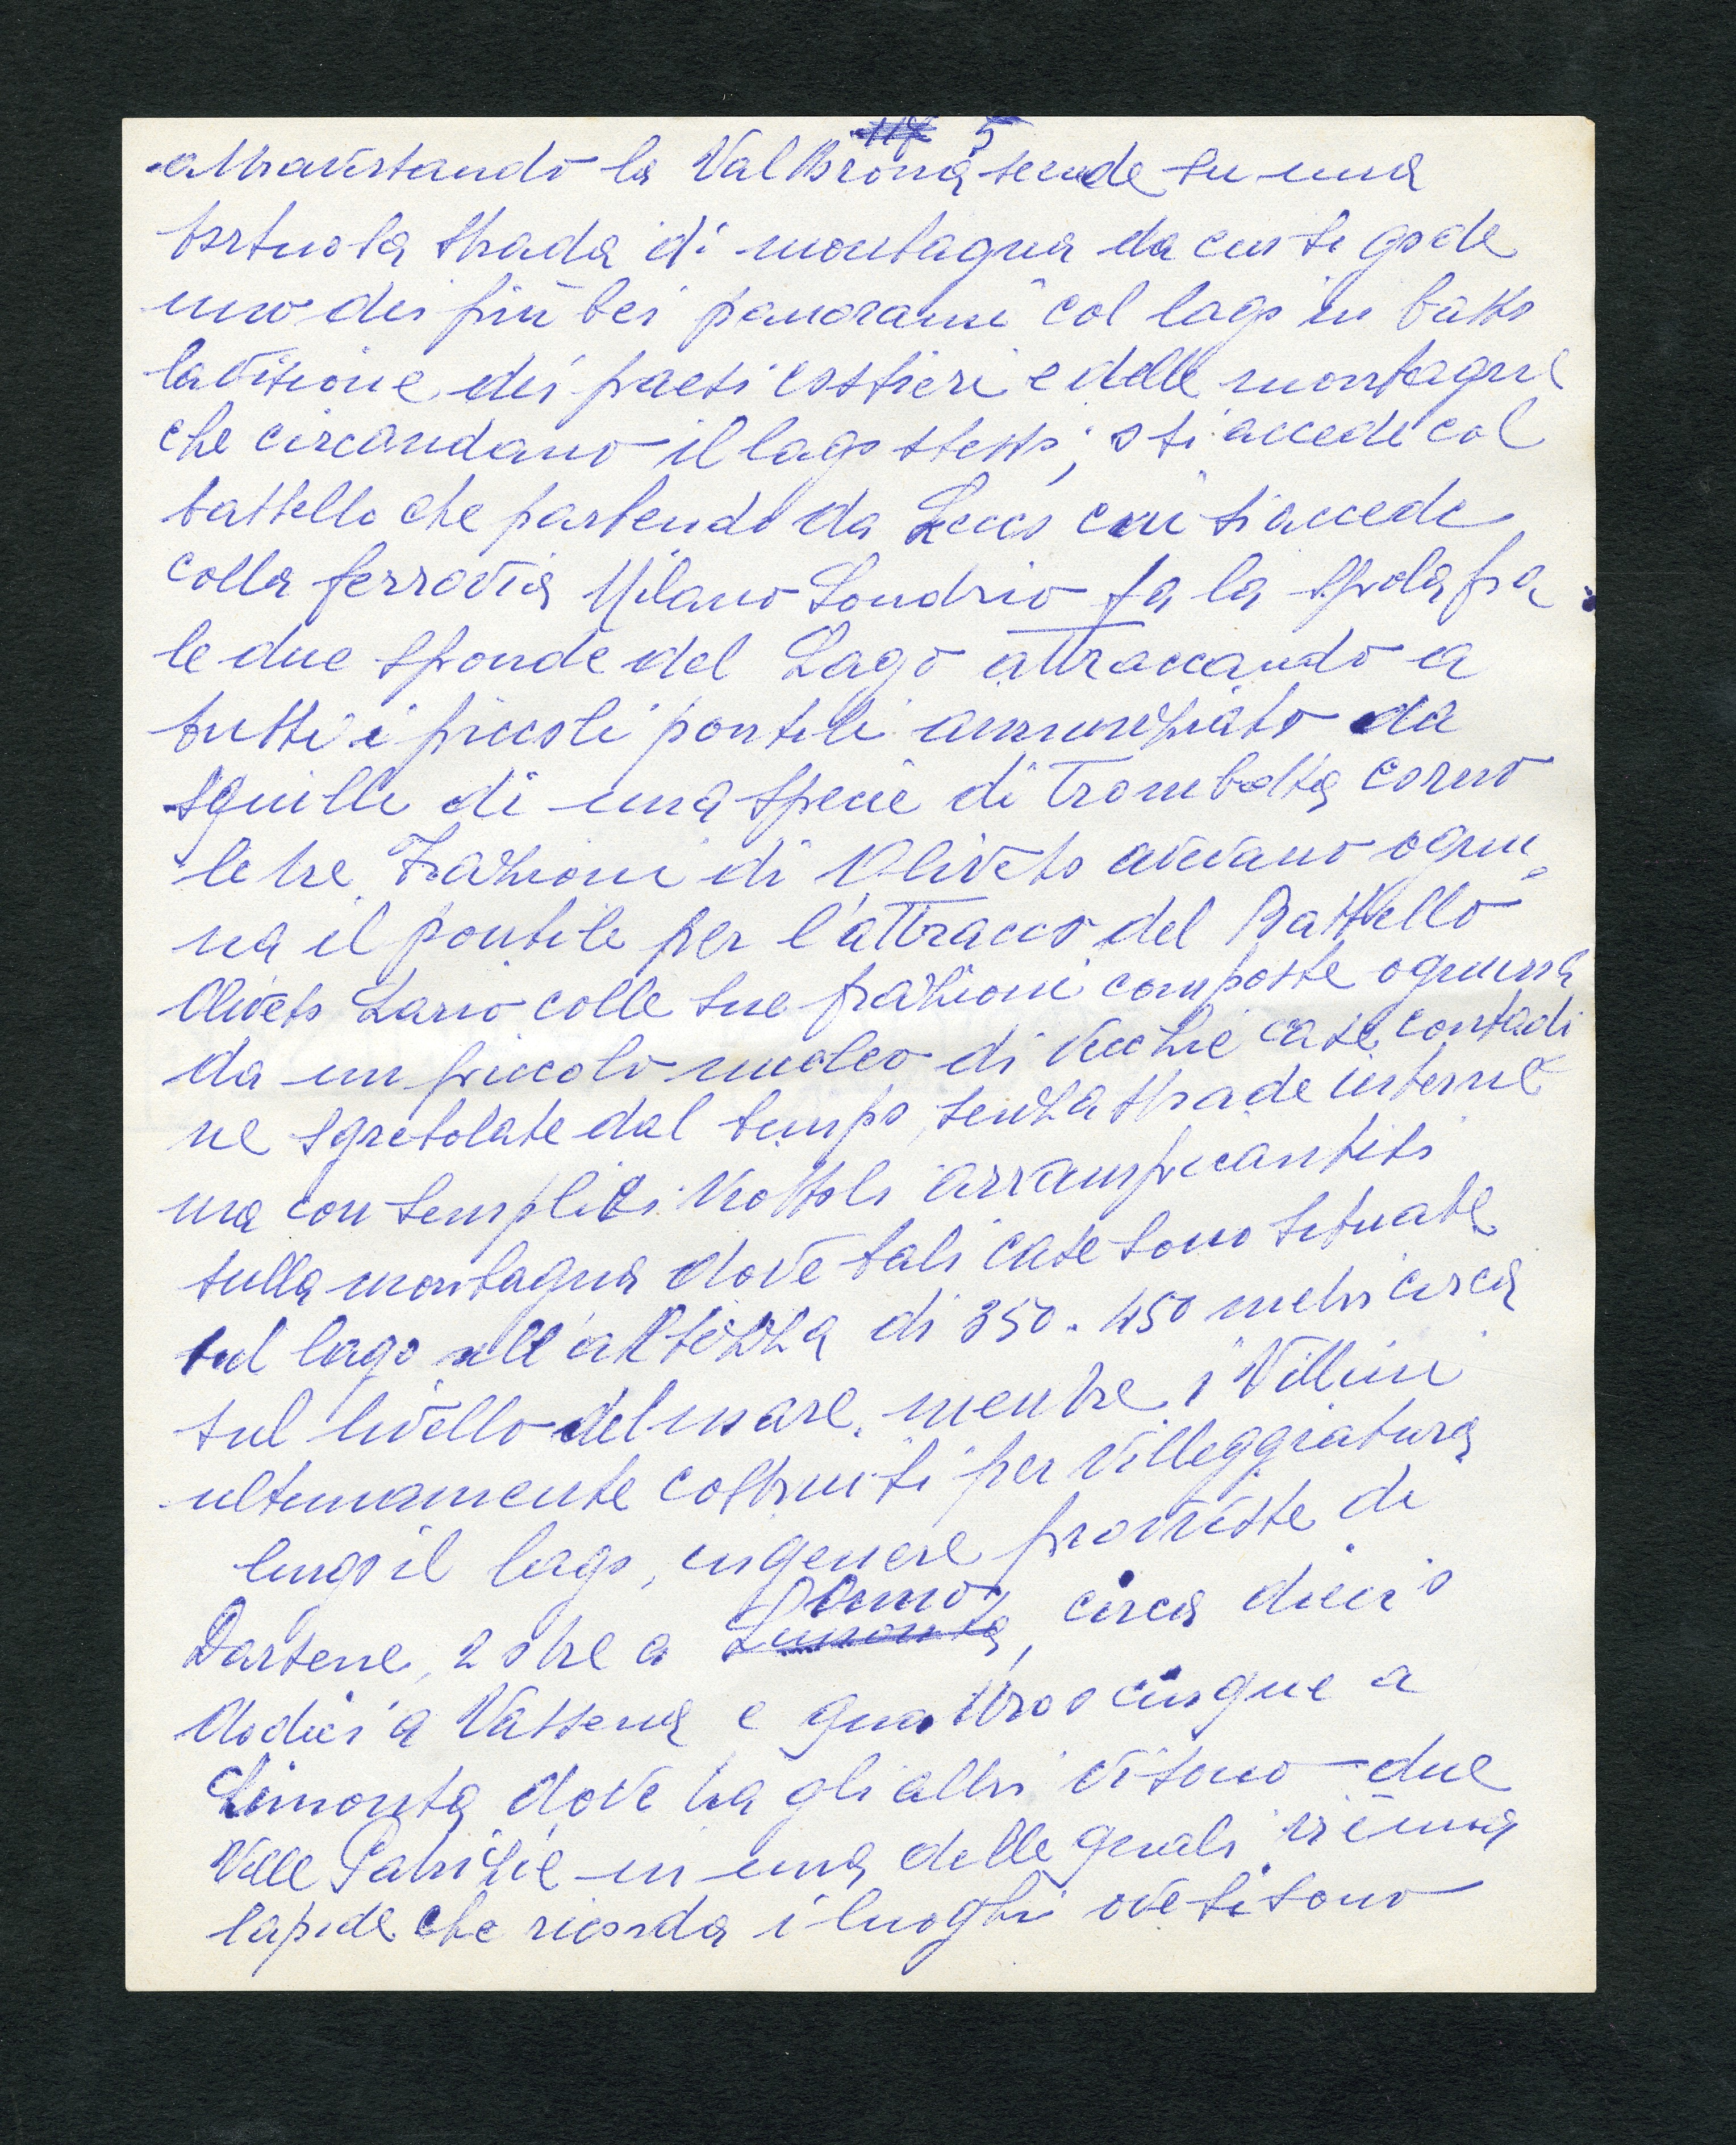 5
attraversando la Val Brona scende su una
tortuosa strada di montagna da cui si gode
uno dei più bei panorami col lago in basso
la visione dei paesi costieri e delle montagne
che circondano il lago stesso; o si accede col
battello che partendo da Lecco cui si accede
colla ferrovia Milano Sondrio fa la spola fra
le due sponde del Lago attraccando a
tutti i piccoli pontili annunziato da
squilli di una specie di trombetta corno
le tre Frazioni di Oliveto avevano ognu
na il pontile per l'attracco del Battello
Oliveto Lario colle sue frazioni composte ognuna
da un piccolo nucleo di vecchie case contadi
ne sgretolate dal tempo, senza strade interne
ma con semplici viottoli arrampicantisi
sulla montagna dove tali case sono situate
sul lago all'altezza di 350-450 metri circa
sul livello del mare, mentre i Villini
ultimamente costruiti per villeggiatura
lungo il lago, in genere provviste di
Darsene, 2 o tre a Onno, circa dieci o
dodici a Vassena e quattro o cinque a
Limonta dove tra gli altri vi sono due
Ville Patrizie in una delle quali vi è una
lapide che ricorda i luoghi ove si sono